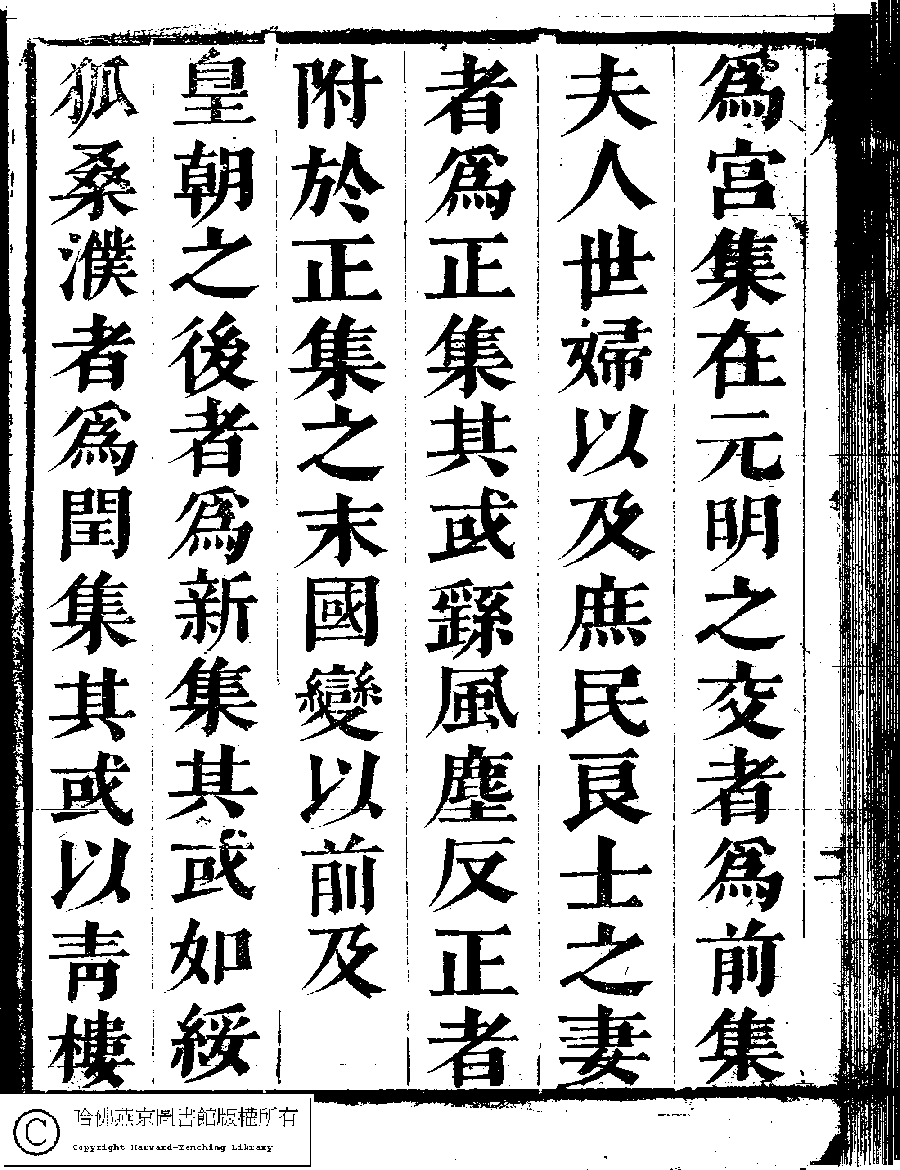 為宮集在元明之交者為前集
夫人世婦以及庶民良士之妻
者為正集其或繇風塵反正者
附於正集之末國變以前及
皇朝之後者為新集其或如綏
狐桑濮者為閏集其或以青樓
哈佛燕京圖書館版權所有
Copyright Harvard-Yenching Library